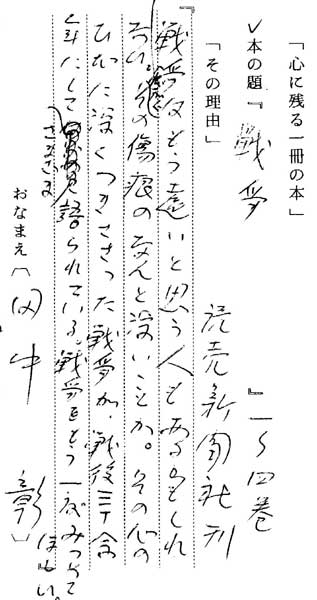 「心に残る一冊の本」
本の題『戦争』一〜四巻
読売新聞社刊
「その理由」
戦争はもう遠いと思う人もあるかもしれ
ない。その傷痕のなんと深いことか。その心の
ひだに深くつきささった戦争が、戦後三十余
年にしてさまざま語られている。戦争をもう一度みつめて
ほしい。
おなまえ（田中 彰）